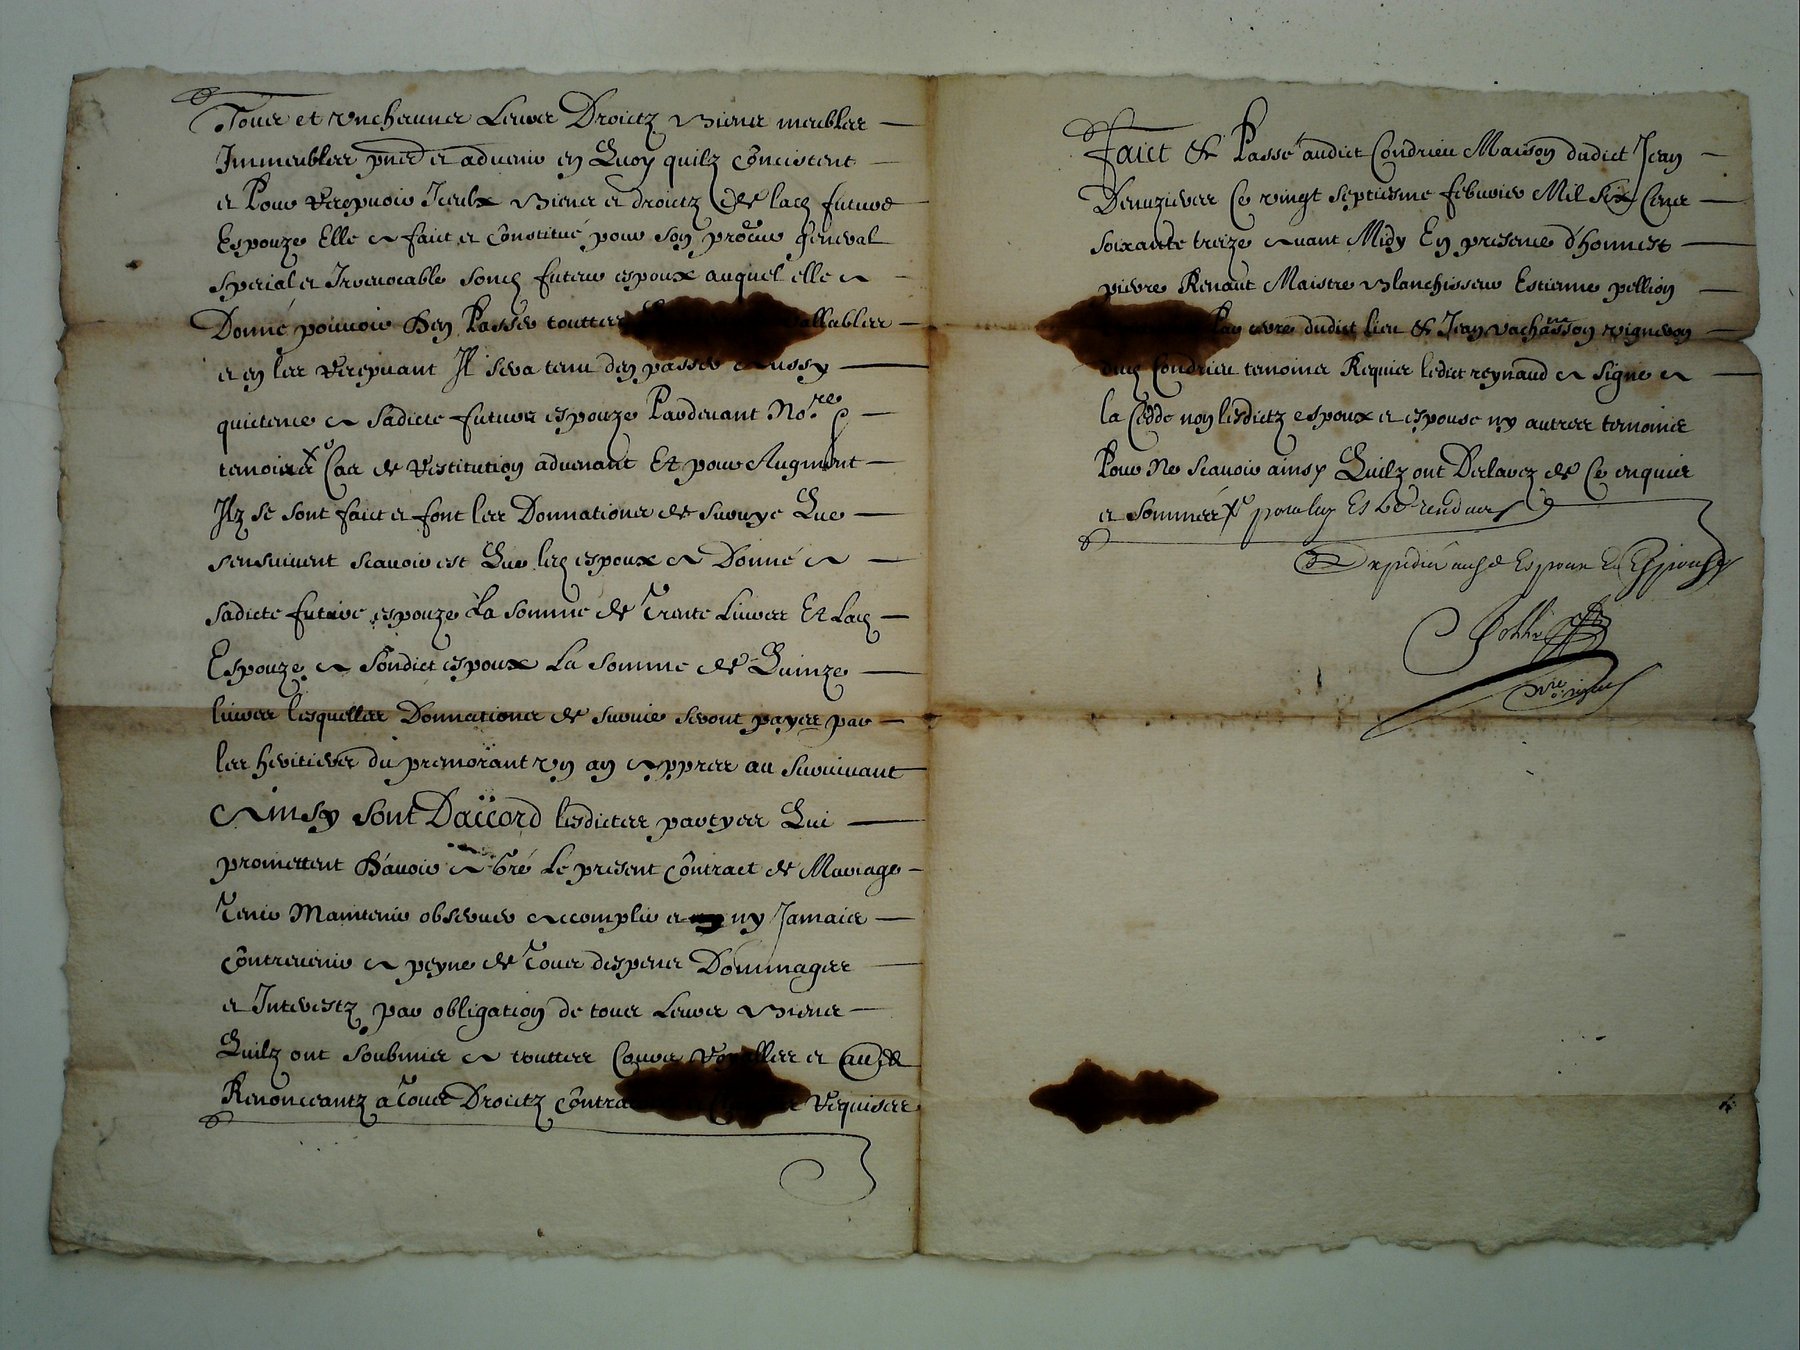 Tous et vnchenuns Leurs Droictz Biens meubles
Immeubles pnts et aduenir en Quoy quilz Concistent
et Pour Recepuoir Iceulx Biens et droictz de lad future
Espouze Elle a faict et Constitué pour son procur general
Special et Irreuocable sond futeur espoux auquel elle a
Donné pouuoir d'en Passer touttes allables
et en les Recepuant Il sera tenu den passer Aussy
quictence a sadicte future espouze Pardeuant No.re
temoins Cas de Restitution aduenant Et pour Augment
Ilz se sont faict et font les Donnations de suruye Que
sensuiuent scauoir est Que led espoux a Donné a
sadicte future espouze La somme de Trente Liures Et Lad
Espouze a Sondict espoux La somme de Quinze
liures lesquelles Donnations de suruie seront payes par
les heritiers du premorant vn an Appres au suruiuant
Ainsy sont Daccord lesdictes partyes Qui
promettent D'auoir a Gré Le present Contract de Mariage
Tenir Maintenir obseruer Accomplir et ny Jamais
Contreuenir a peyne de Tous despens Dommages
et Interestz par obligation de tous Leurs Biens
Quilz ont soubmis a touttes Cours Royalles et
Renonceantz a Tous Droictz Contra Requises
Faict & Passé audict Condrieu Maison dudict Jean
Deruzieres Ce vingt septiesme febvrier Mil Six Cens
soixante treize Auant Midy En presence d'honnest
pierre Renaut Maistre Blanchisseur Estienne pellion
dudict lieu & Jean vachasson vigneron
dud Condrieu temoins Requis ledict reynaud a signé a
la Cedde non lesdictz espoux et espouse ny autres temoins
Pour Ne scauoir ainsy Quilz ont Declarez de Ce enquis
et sommés
Expedié ausd Espoux Et Espouse